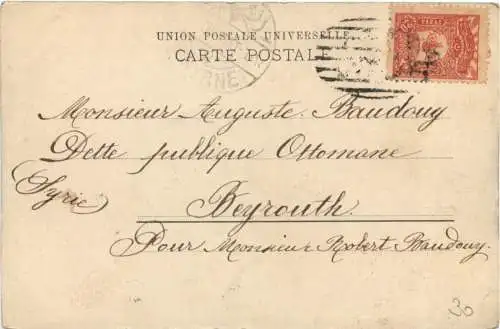 UNION POSTALE UNIVERSELLE
CARTE POSTALE
Monsieur Auguste Baudouy
Dette publique Ottomane
(Syrie)
Beyrouth.
Pour Monsieur Robert Baudouy
30